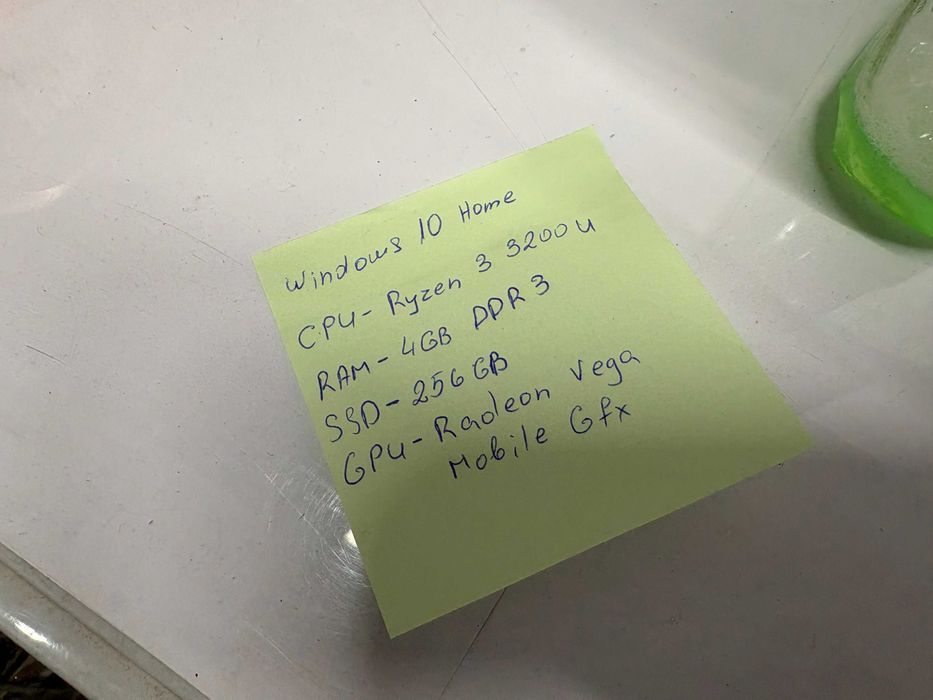 Windows 10 Home
CPU- Ryzen 3 3200U
RAM- 4GB DDR3
SSD- 256GB
GPU- Radeon Vega
Mobile Gfx